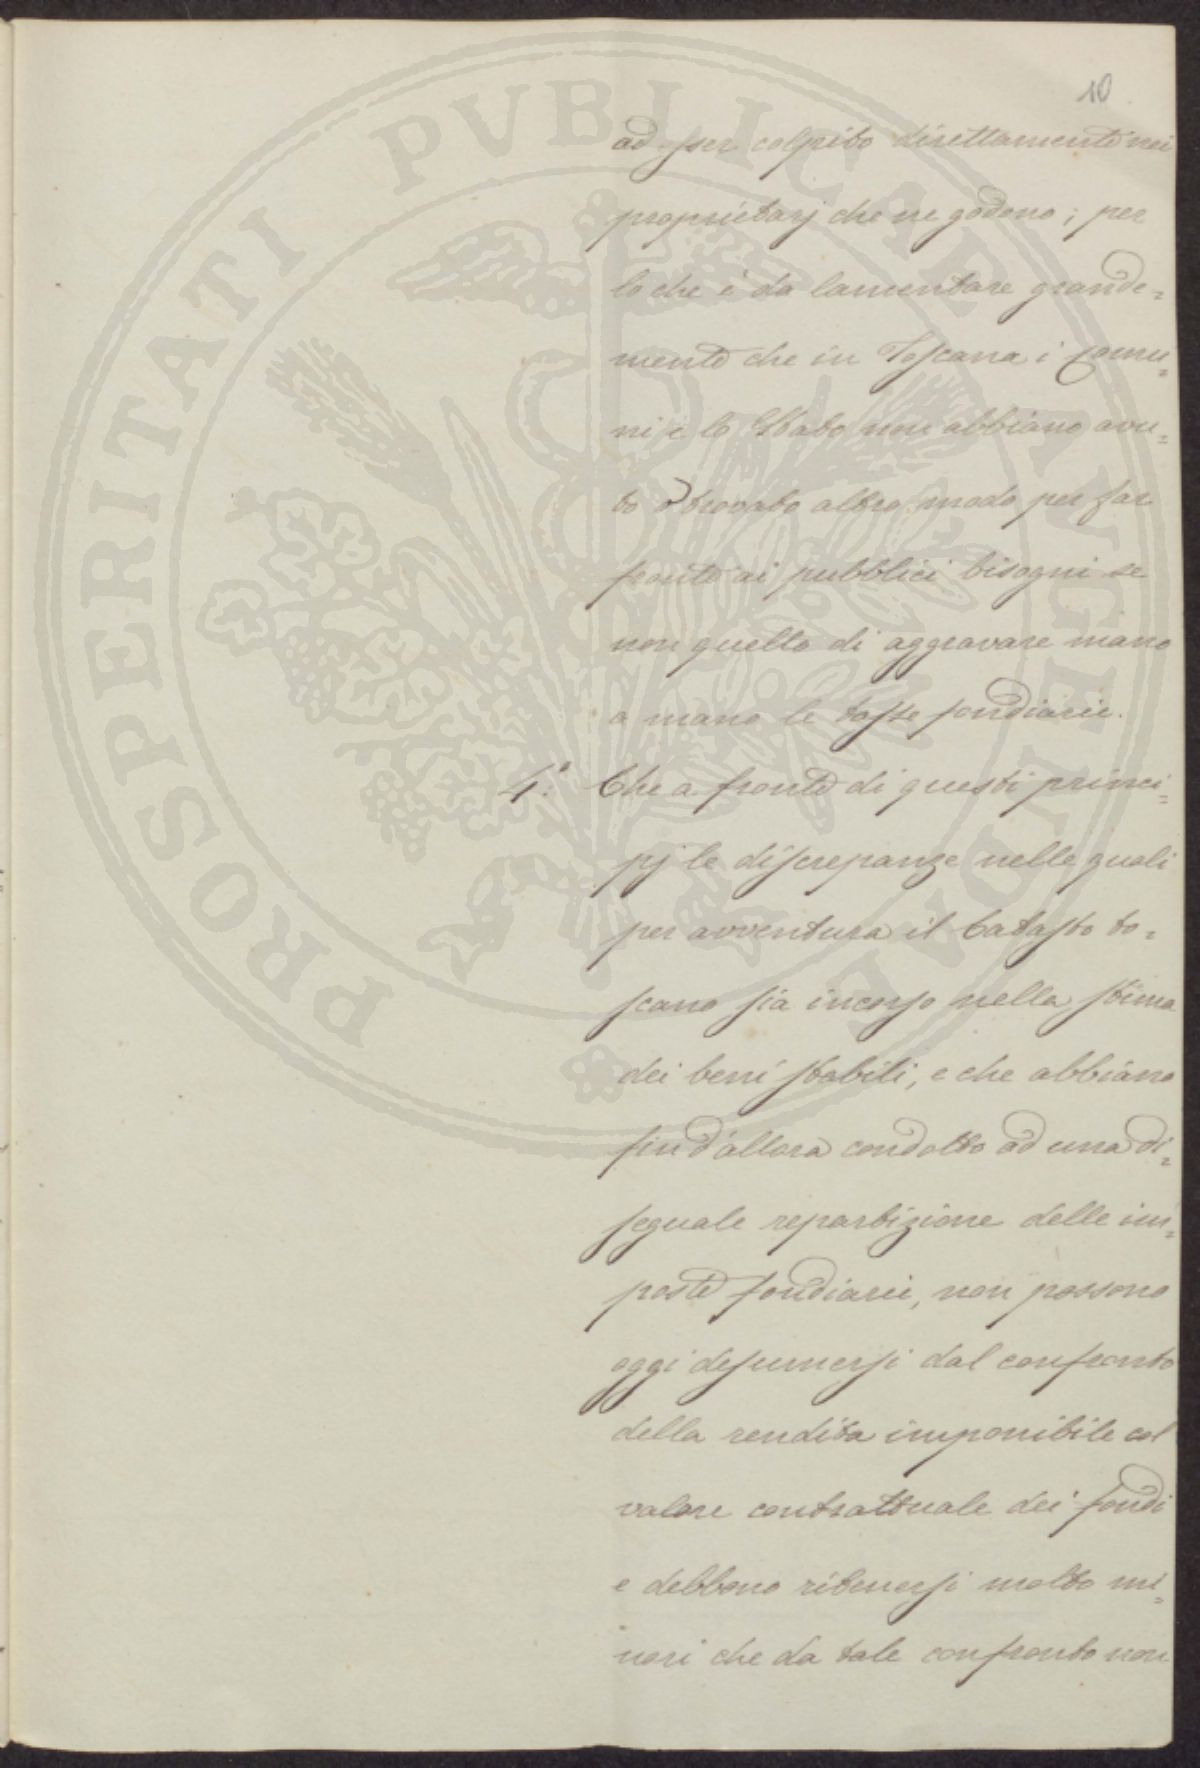 10
ad esser colpito direttamente nei
proprietarj che ne godono; per
lo che è da lamentare grande=
mente che in Toscana i Comu=
ni e lo Stato non abbiano avu=
to o trovato altro modo per far
fronte ai pubblici bisogni se
non quello di aggravare mano
a mano le tasse fondiarie.
4.° Che a fronte di questi princi=
pj le discrepanze nelle quali
per avventura il Catasto to=
scano sia incorso nella stima
dei beni stabili, e che abbiano
fin d'allora condotto ad una di=
seguale repartizione delle im=
poste fondiarie, non possono
oggi desumersi dal confronto
della rendita imponibile col
valore contrattuale dei fondi
e debbono ritenersi molto mi=
nori che da tale confronto non
PROSPERITATI PVBLICAE AVGENDAE